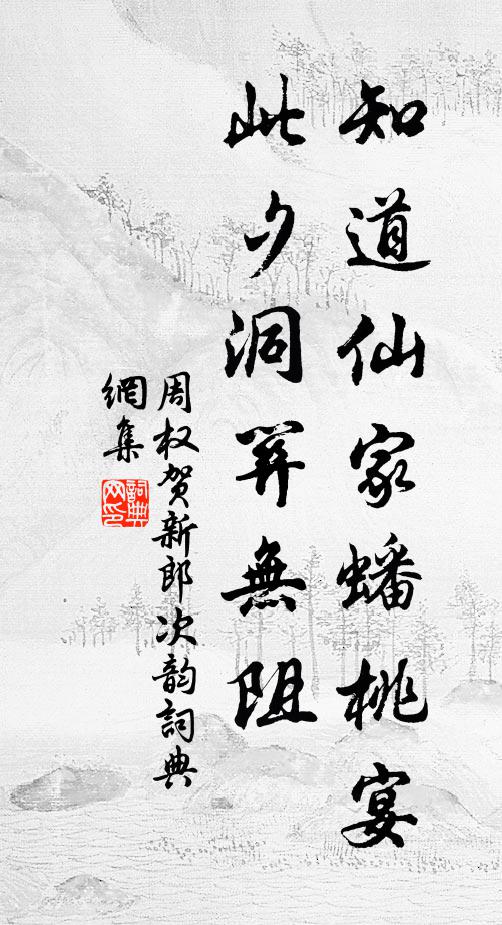 知道仙家蟠桃宴
此夕洞開無阻
周权贺新郎次韵詞典
網集
詞典
网印